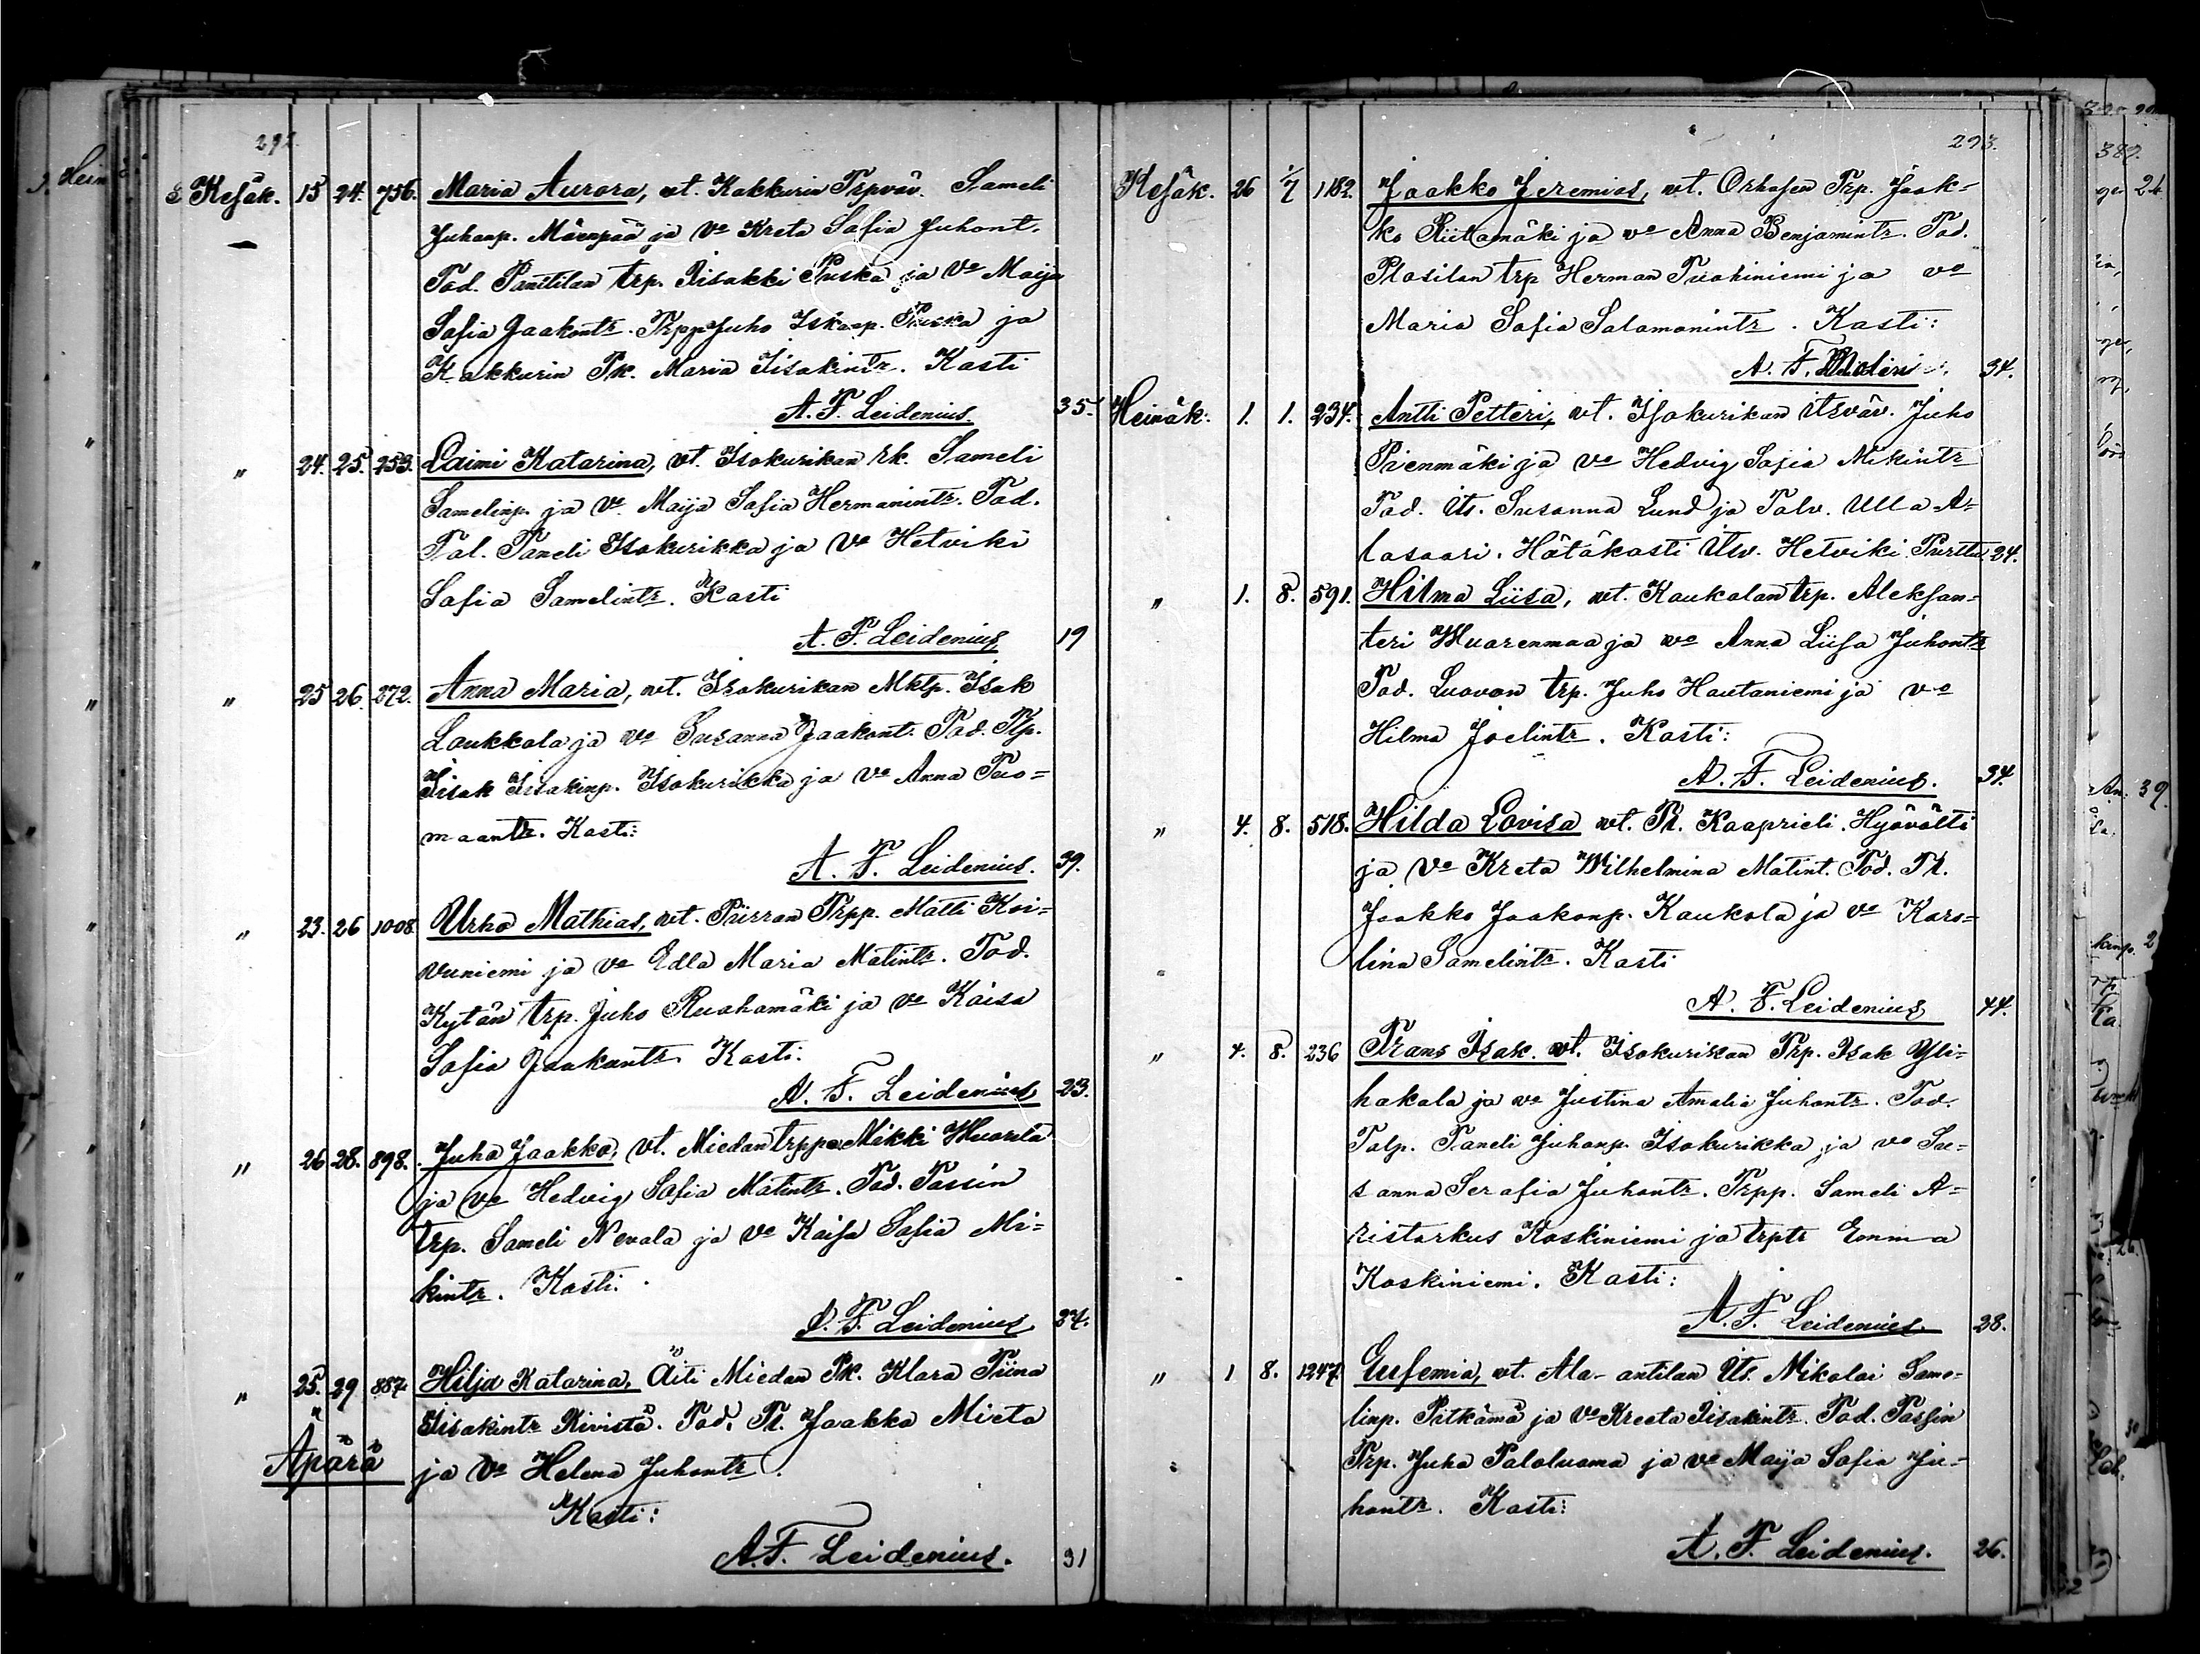 292.
Kesäk. 15 24. 756. Maria Aurora, vt. Kakkurin Trpväv. Sameli
Juhonp. Mäenpää ja Vo Kreta Sofia Juhont.
Tod. Panttilan trp. Iisakki Puska ja Vo Maija
Sofia Jaakontr. Trpp Juho Iskanp. Puska ja
Kakkurin Pk. Maria Iisakintr. Kasti
A. F. Leidenius. 35.
" 24. 25. 253. Laimi Katarina, vt. Isokurikan rk. Sameli
Samelinp. ja Vo Maija Sofia Hermanintr. Tod.
Tal. Taneli Isokurikka ja Vo Hetviki
Sofia Samelintr. Kasti
A. F. Leidenius 19
" 25 26. 272. Anna Maria, vt. Isokurikan Mktp. Isak
Laukkola ja vo Susanna Jaakont. Tod. Tlp.
Iisak Iisakinp. Isokurikka ja Vo Anna Tuo=
maantr. Kasti:
A. F. Leidenius. 39.
" 23. 26 1008 Urho Mathias, vt. Piirran Trpp. Matti Koi=
vuniemi ja Vo Edla Maria Matintr. Tod.
Kytän trp. Juho Ruohomäki ja Vo Kaisa
Sofia Jaakontr. Kasti:
A. F. Leidenius 23.
" 26 28. 898. Juha Jaakko, vt. Miedan trppa Mikki Wuorela
ja Vo Hedvig Sofia Matintr. Tod. Passin
trp. Sameli Nevala ja Vo Kaisa Sofia Mi=
kintr. Kasti.
A. F. Leidenius 34.
" 25. 29 887. Hilja Katarina, Äiti Miedan Pk. Klara Tiina
Iisakintr Kivistö. Tod. Tl. Jaakko Mieta
Äpärä ja Vo Helena Juhontr.
Kasti:
A. F. Leidenius. 31
293.
Kesäk. 26 1/7 1182. Jaakko Jeremias, vt. Orhasen Trp. Jaak=
ko Riitamäki ja vo Anna Benjamintr. Tod.
Plosilan trp Herman Tuokiniemi ja vo
Maria Sofia Salomonintr. Kasti:
A. F. 34.
Heinäk. 1. 1. 234. Antti Petteri, vt. Isokurikan Itsväv. Juho
Pienmäki ja Vo Hedvig Sofia Mikintr
Tod. Its. Susanna Lund ja Palv. Ulla A=
lasaari. Hätäkasti Itsv. Hetviki Purttu. 24.
" 1. 8. 591. Hilma Liisa, vt. Kaukolan trp. Aleksan=
teri Wuorenmaa ja vo Anna Liisa Juhontr
Tod. Luovan trp. Juho Hautaniemi ja vo
Hilma Joelintr. Kasti:
A. F. Leidenius. 34.
" 4. 8. 518. Hilda Lovisa vt. Tl. Kaaprieli Hyövälti
ja Vo Kreta Wilhelmina Matint. Tod. Tl.
Jaakko Jaakonp. Kaukola ja vo Karo=
lina Samelintr. Kasti
A. F. Leidenius 44.
" 4. 8. 236 Frans Isak. vt. Isokurikan Trp. Isak Yli=
hakala ja vo Justina Amalia Juhontr. Tod.
Talp. Taneli Juhonp. Isokurikka ja vo Su=
sanna Serafia Juhontr. Trpp. Sameli A=
ristarkus Koskiniemi ja trptr Emma
Koskiniemi. Kasti:
A. F. Leidenius. 28.
" 1 8. 1247. Eufemia, vt. Ala-antilan Its. Nikolai Same=
linp. Pitkämö ja Vo Kreeta Iisakintr. Tod. Passin
Trp. Juha Paloluoma ja Vo Maija Sofia Ju=
hontr. Kasti:
A. F. Leidenius. 26.